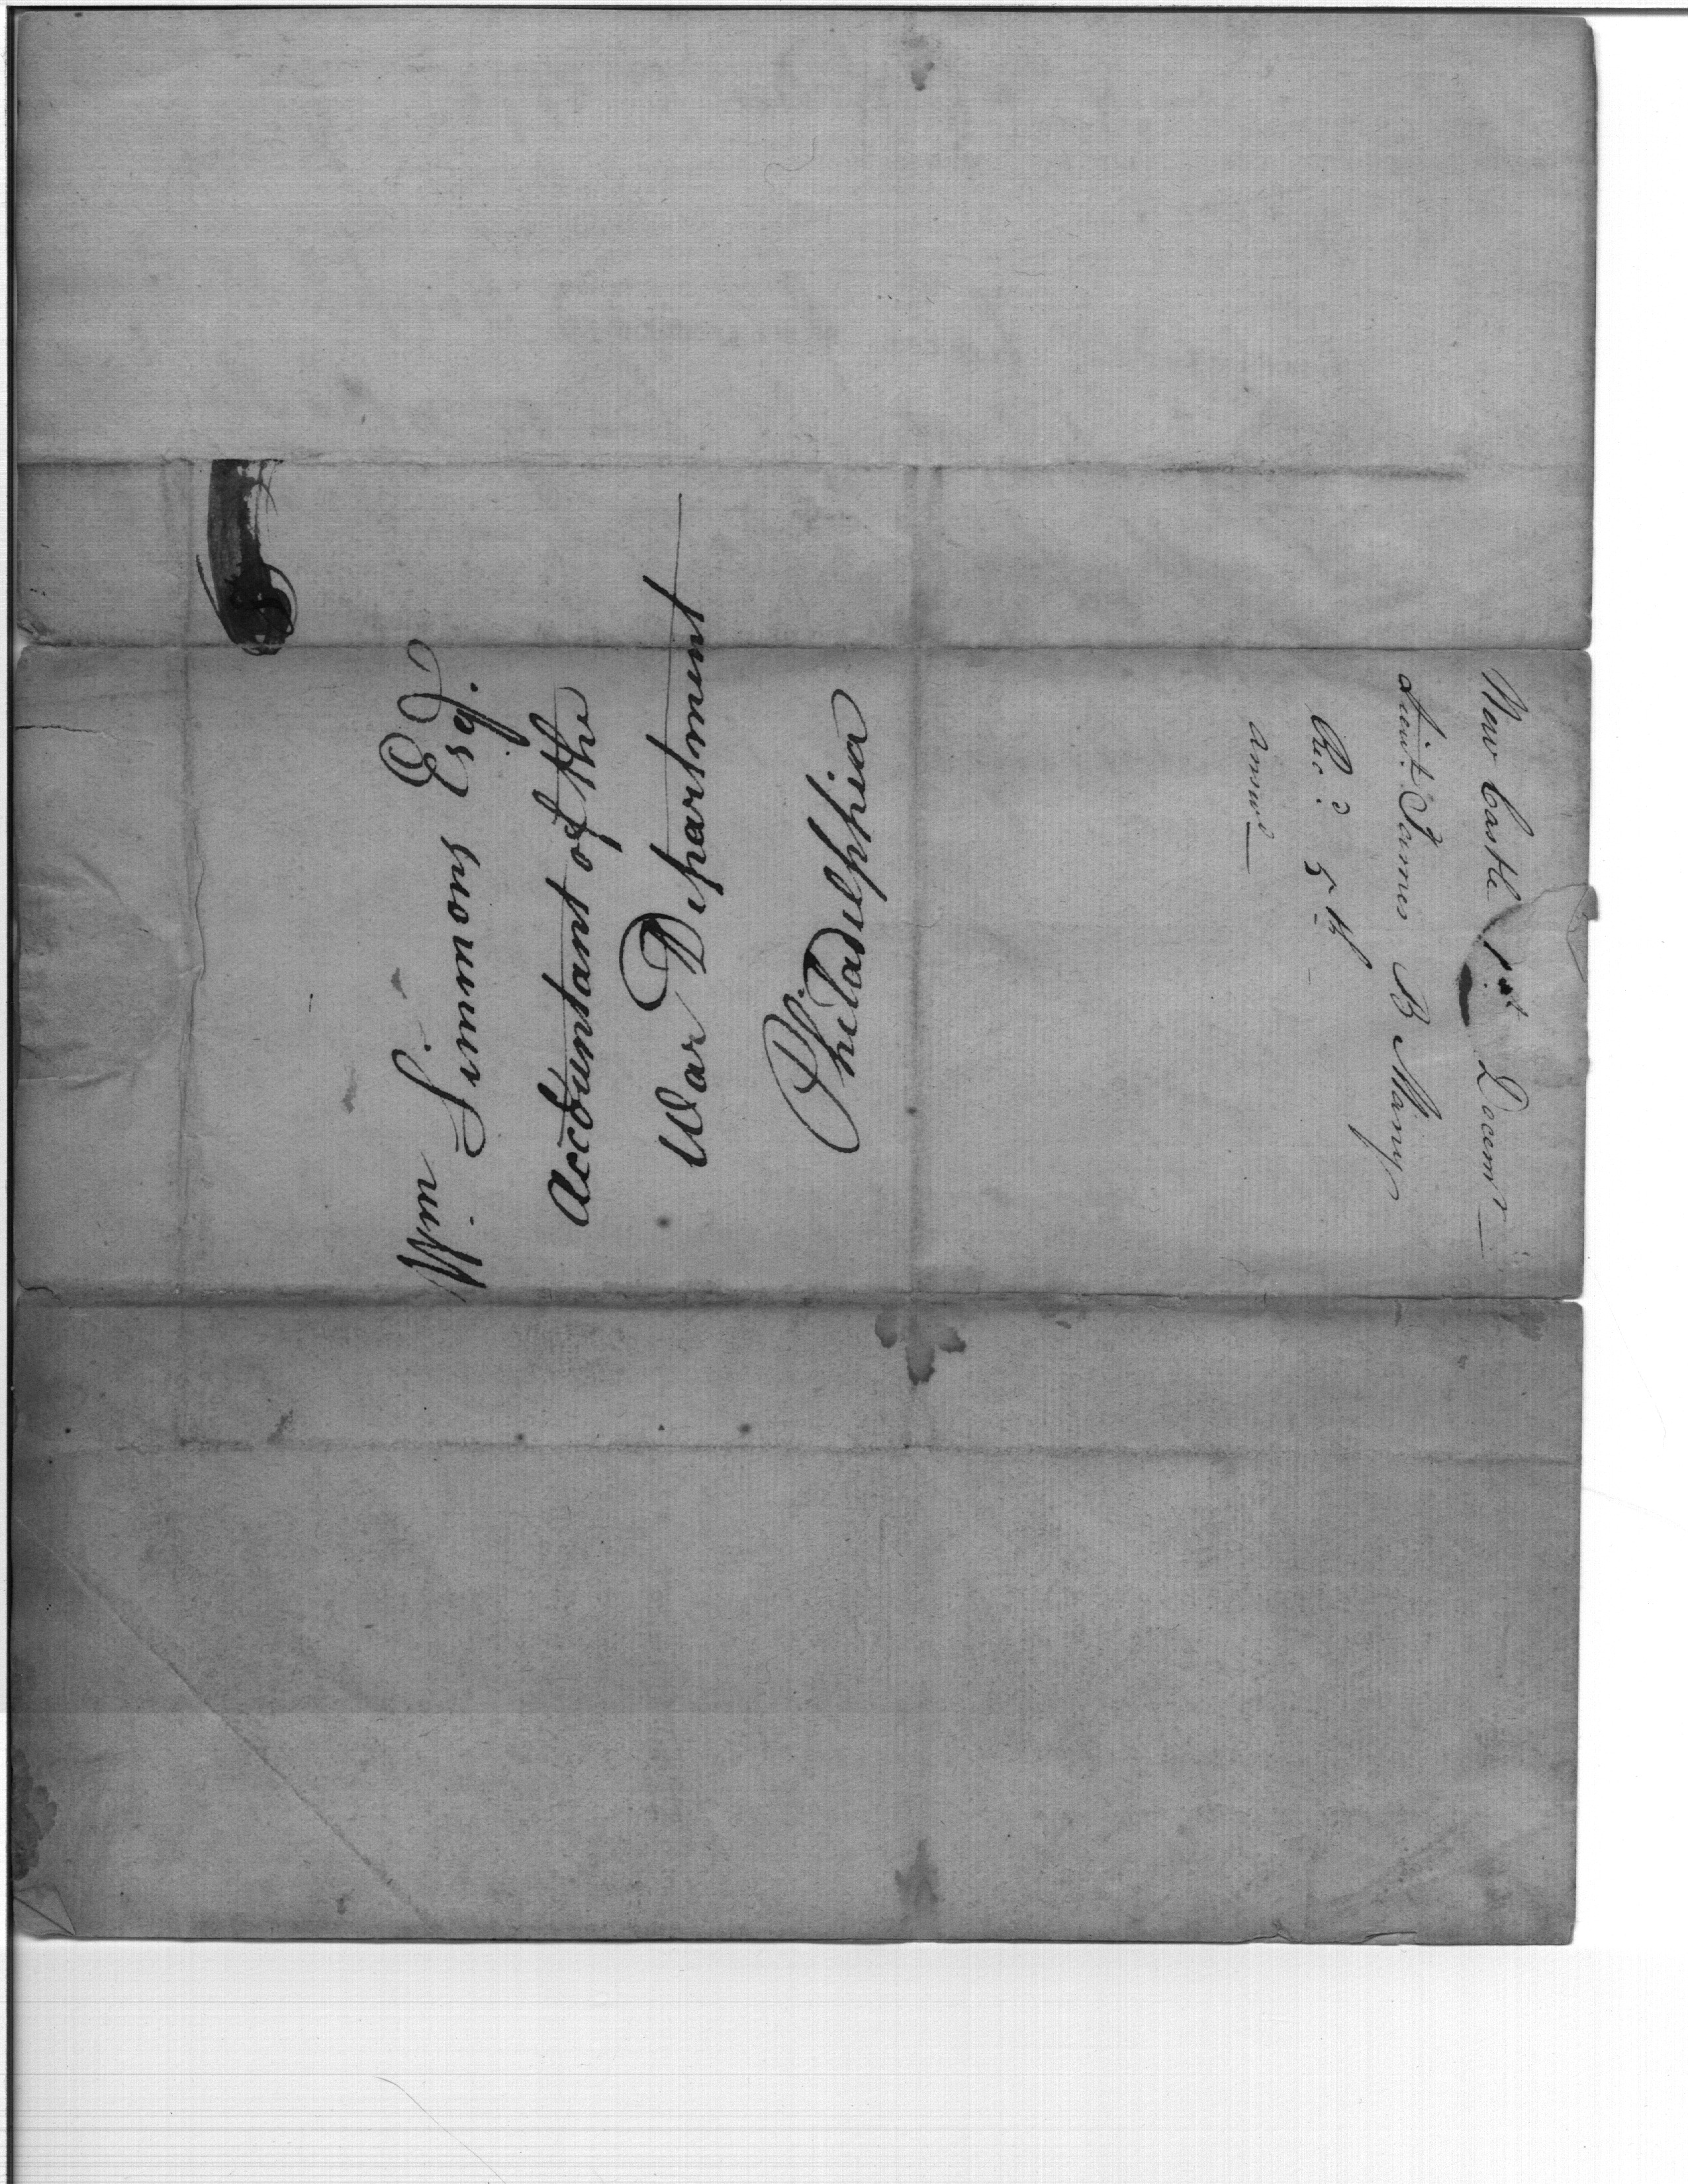 Wm Simmons Esqr.
Accountant of the
War Department
Philadelphia
New Castle 1st Decemr
Lieut. James B Many
Recd. 5th
answd